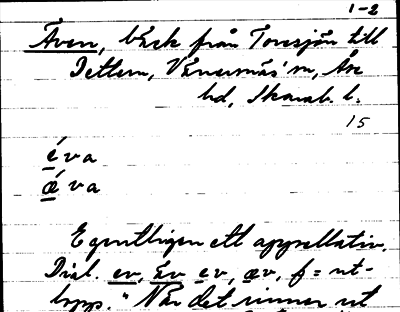 1-2
Även, bäck från Torsjön till
Dettern, Vänersnäs sn, Åse
hd, Skarab. l.
15
é v a
ǽ v a
Egentligen ett appellativ.
Dial. ev, äv ev, æv, f = ut-
lopp. "När det rinner ut